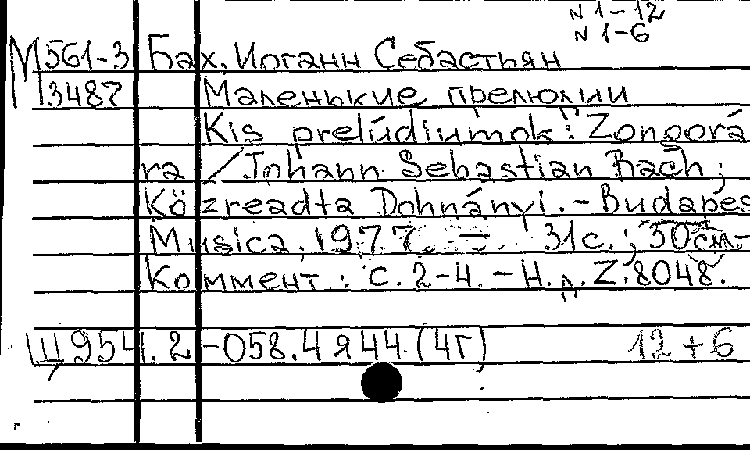 N 1-12
N 1-6
М561-3 Бах, Иоганн Себастьян
13487 Маленькие прелюдии
Kis prelúdiumok: Zongorá
ra / Johann Sebastian Bach;
Közreadta Dohnányi. - Budapes
Musica, 1977. - 31 с.; 30см-
Коммент: с. 2-4. - Н. д. Z. 8048.
Щ954.2-058.4я44.(4Г) 12+6